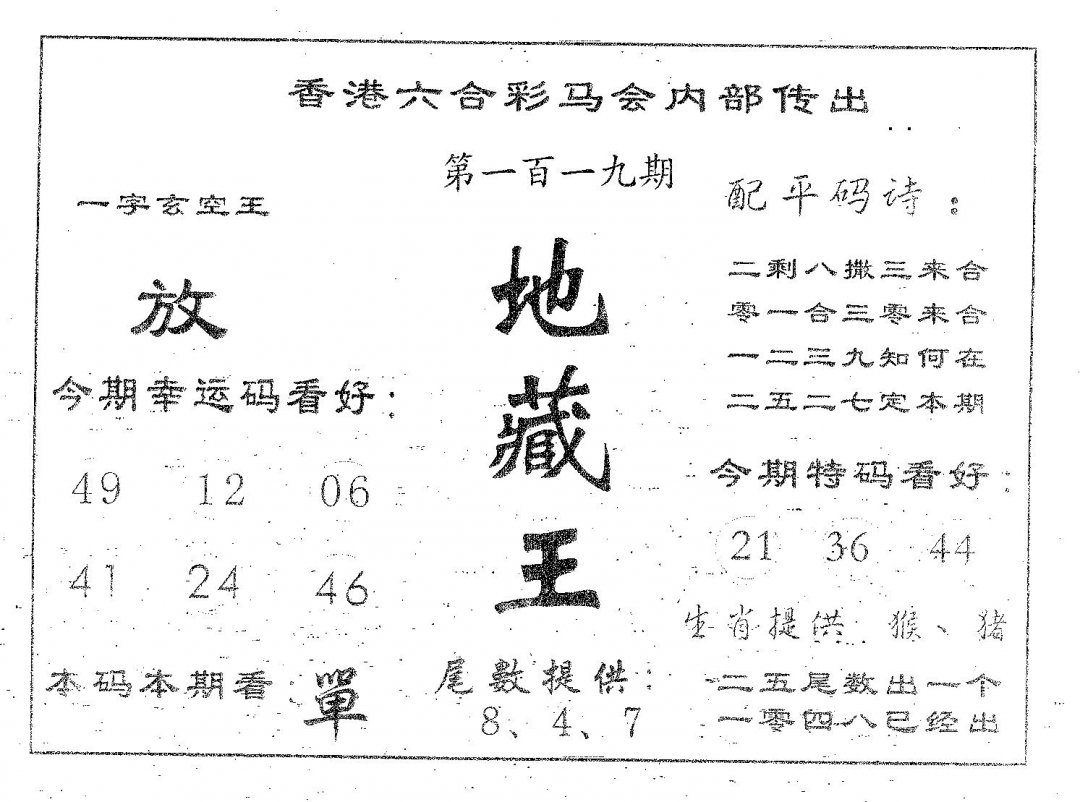 香港六合彩马会内部传出
第一百一十九期
一字玄空王
放
今期幸运码看好:
49 12 06
41 24 46
本码本期看: 單
地
藏
王
尾數提供:
8、4、7
配平码诗:
二剩八撒三来合
零一合三零来合
一二三九知何在
二五二七定本期
今期特码看好:
21 36 44
生肖提供: 猴、猪
二五尾数出一个
一零四八已经出